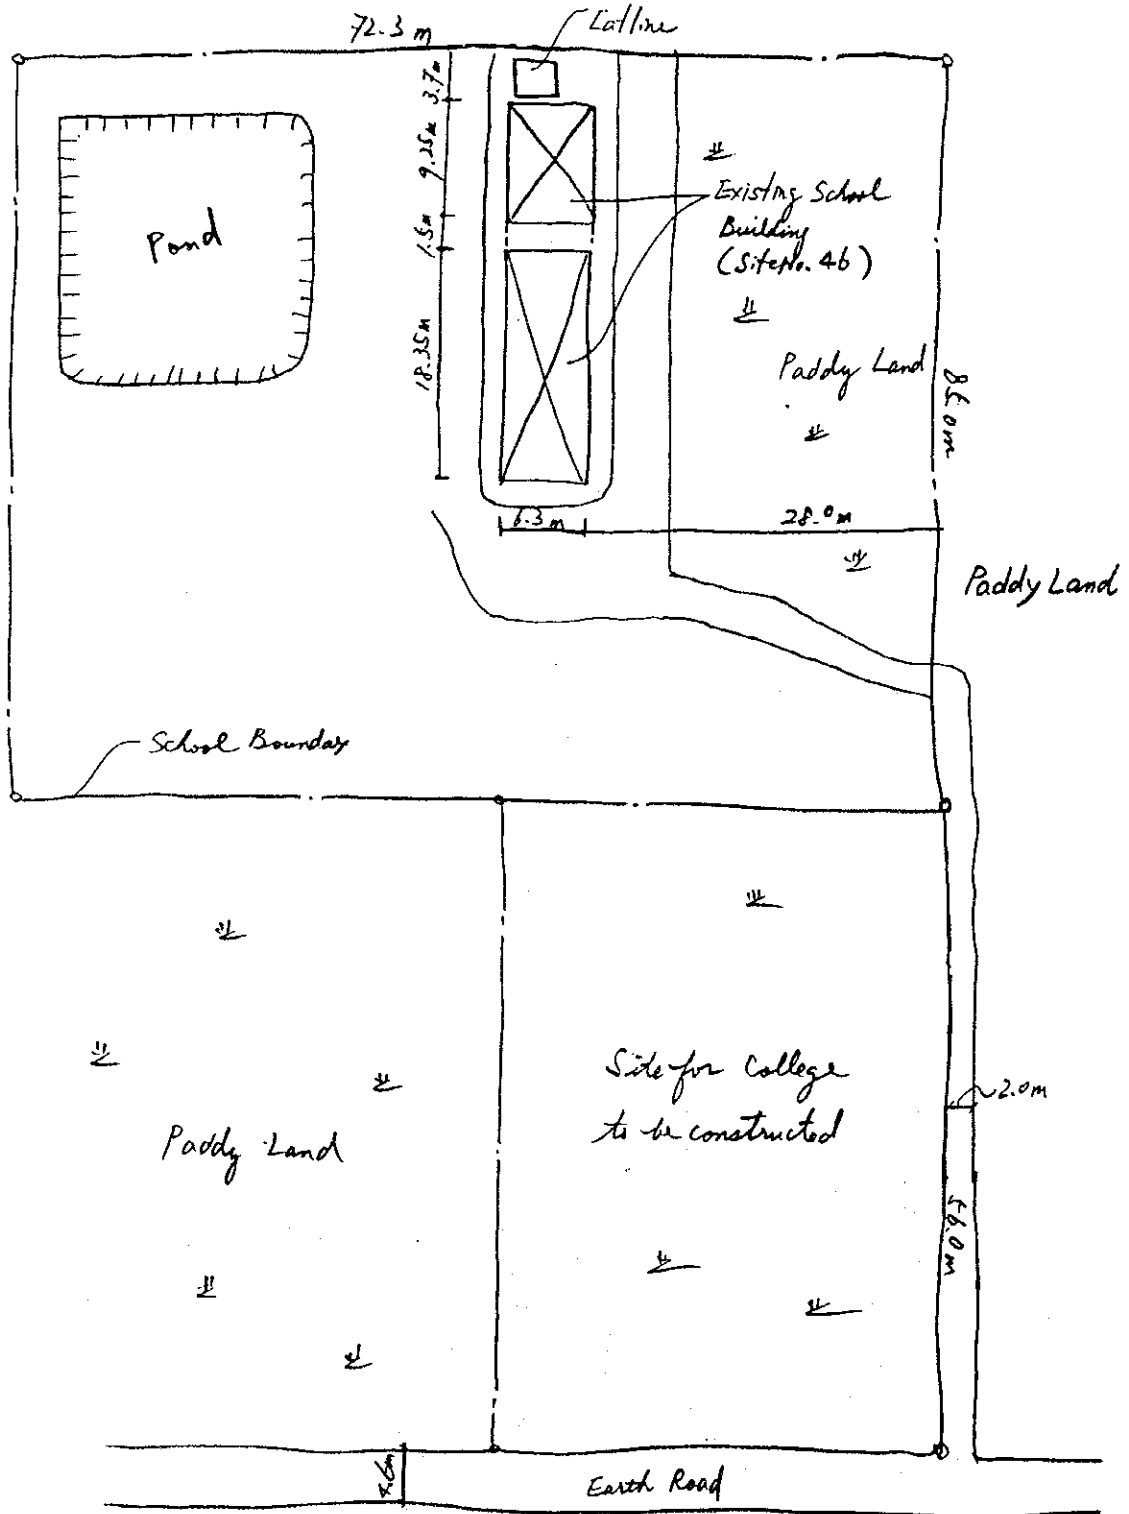 72.3 m
Latline
3.7m
9.25m
1.5m
18.35m
Pond
Existing School
Building
(Site No. 46)
Paddy Land
85.0m
6.3 m
28.0m
Paddy Land
School Bounday
Site for College
to be constructed
2.0m
Paddy Land
56.0m
Earth Road